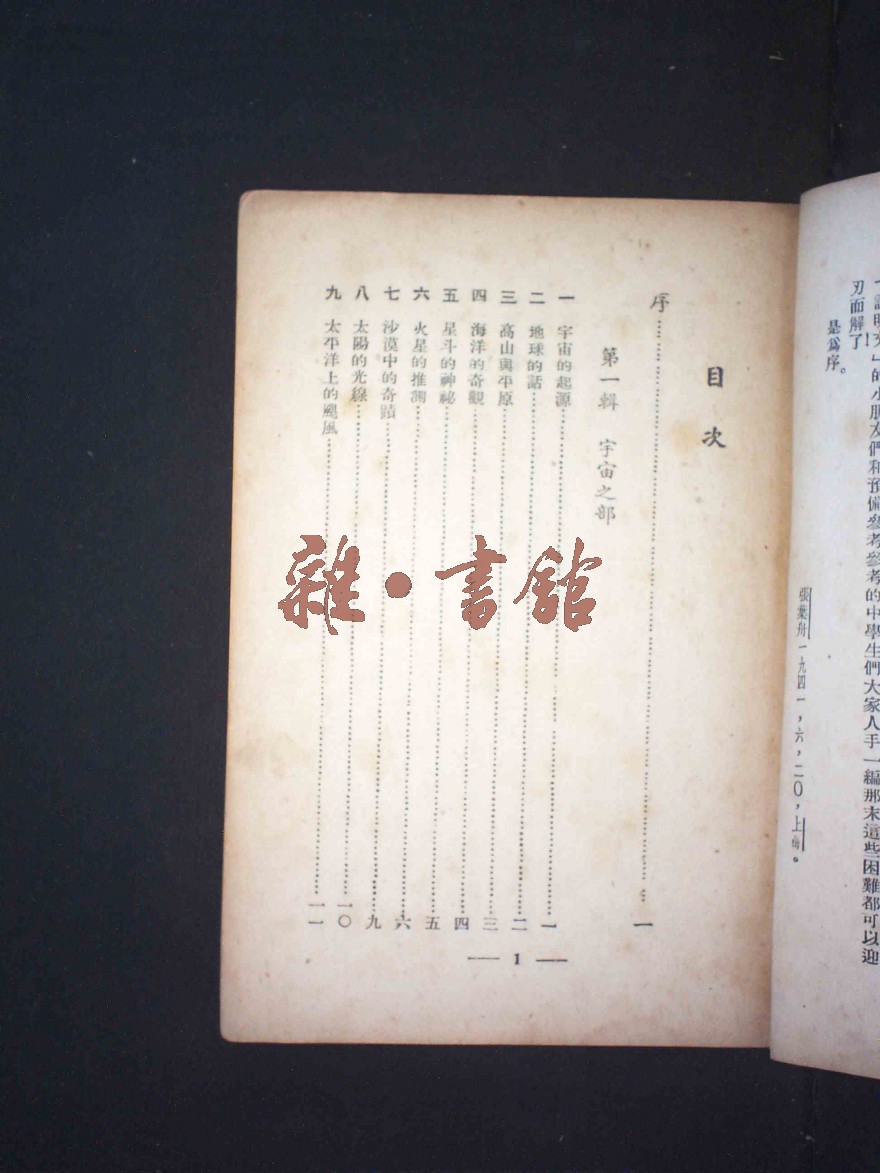 」的小朋友們和預備參考參考的中學生們大家人手一編那末這些困難都可以迎
刃面解了！
是爲序。
張葉舟一九四一，六，二〇，上海。
目次
序……一
第一輯 宇宙之部
一 宇宙的起源……一
二 地球的話……二
三 高山與平原……三
四 海洋的奇觀……四
五 星斗的神祕……五
六 火星的推測……六
七 沙漠中的奇蹟……九
八 太陽的光線……一〇
九 太平洋上的颶風……一一
— 1 —
雜·書館